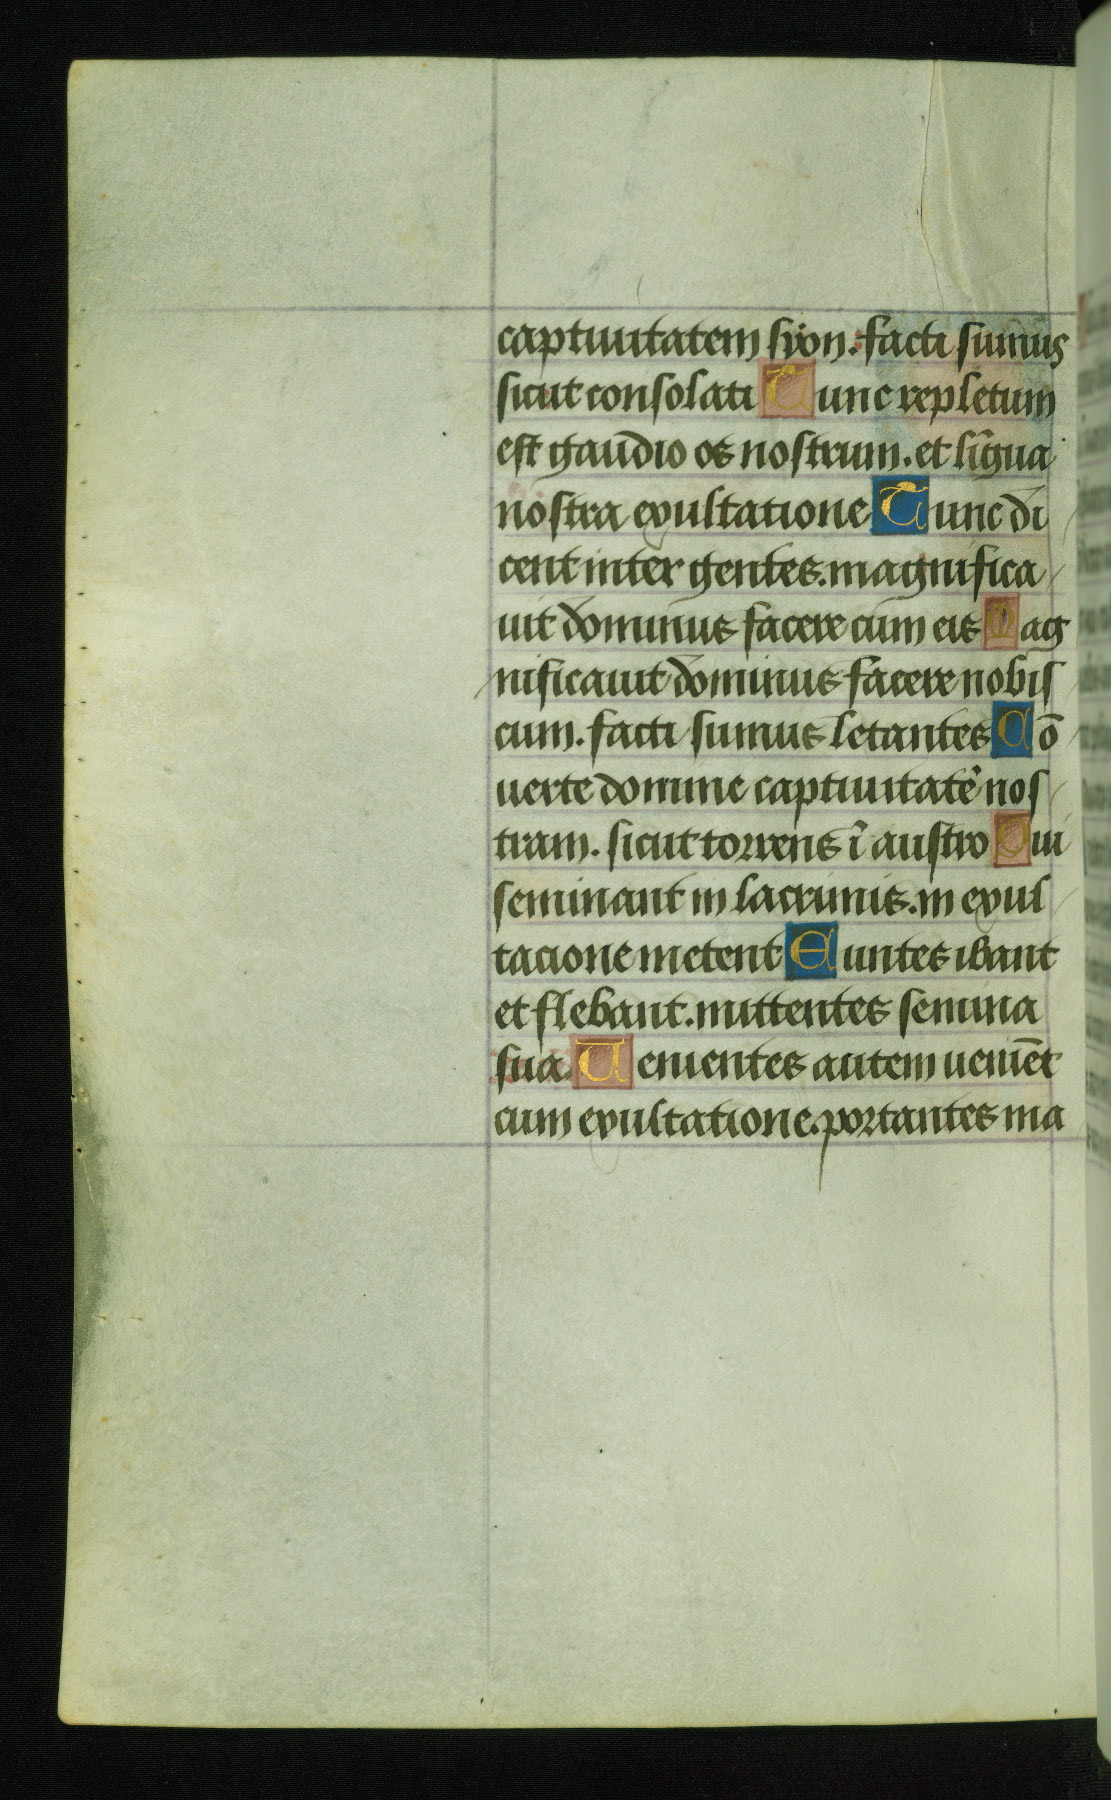 captiuitatem syon. facti sumus
sicut consolati Tunc repletum
est gaudio os nostrum. et līgua
nostra exultatione Tunc di
cent inter gentes. magnifica
uit dominus facere cum eis Mag
nificauit dominus facere nobis
cum. facti sumus letantes Cō
uerte domine captiuitatē nos
tram. sicut torrens ī austro Qui
seminant in lacrimis. in exul
tacione metent Euntes ibant
et flebant. mittentes semina
sua. Uenientes autem ueniēt
cum exultatione. portantes ma